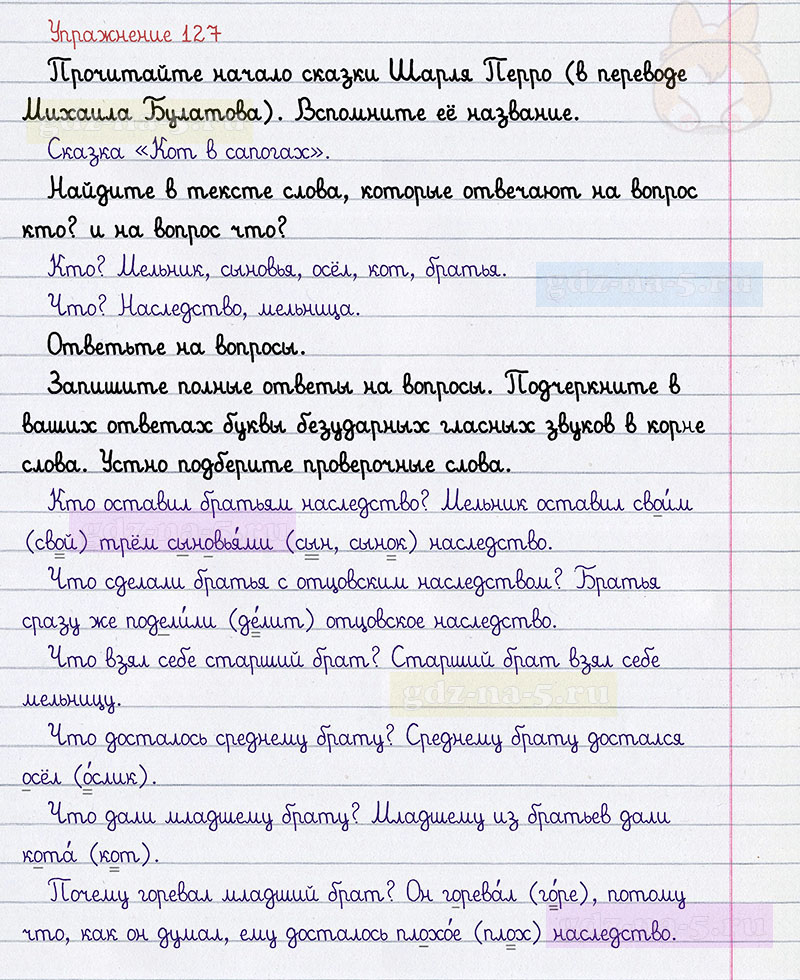 Упражнение 127
Прочитайте начало сказки Шарля Перро (в переводе
Михаила Булатова). Вспомните её название.
Сказка «Кот в сапогах».
Найдите в тексте слова, которые отвечают на вопрос
кто? и на вопрос что?
Кто? Мельник, сыновья, осёл, кот, братья.
gdz-na-5.ru
Что? Наследство, мельница.
Ответьте на вопросы.
Запишите полные ответы на вопросы. Подчеркните в
ваших ответах буквы безударных гласных звуков в корне
слова. Устно подберите проверочные слова.
Кто оставил братьям наследство? Мельник оставил свои́м
(свой) трём сыновья́ми (сын, сынок) наследство.
Что сделали братья с отцовским наследством? Братья
сразу же подели́ли (де́лит) отцовское наследство.
Что взял себе старший брат? Старший брат взял себе
мельницу.
gdz-na-5.ru
Что досталось среднему брату? Среднему брату достался
осёл (о́слик).
Что дали младшему брату? Младшему из братьев дали
кота́ (кот).
Почему горевал младший брат? Он горева́л (го́ре), потому
что, как он думал, ему досталось плохо́е (плох) наследство.